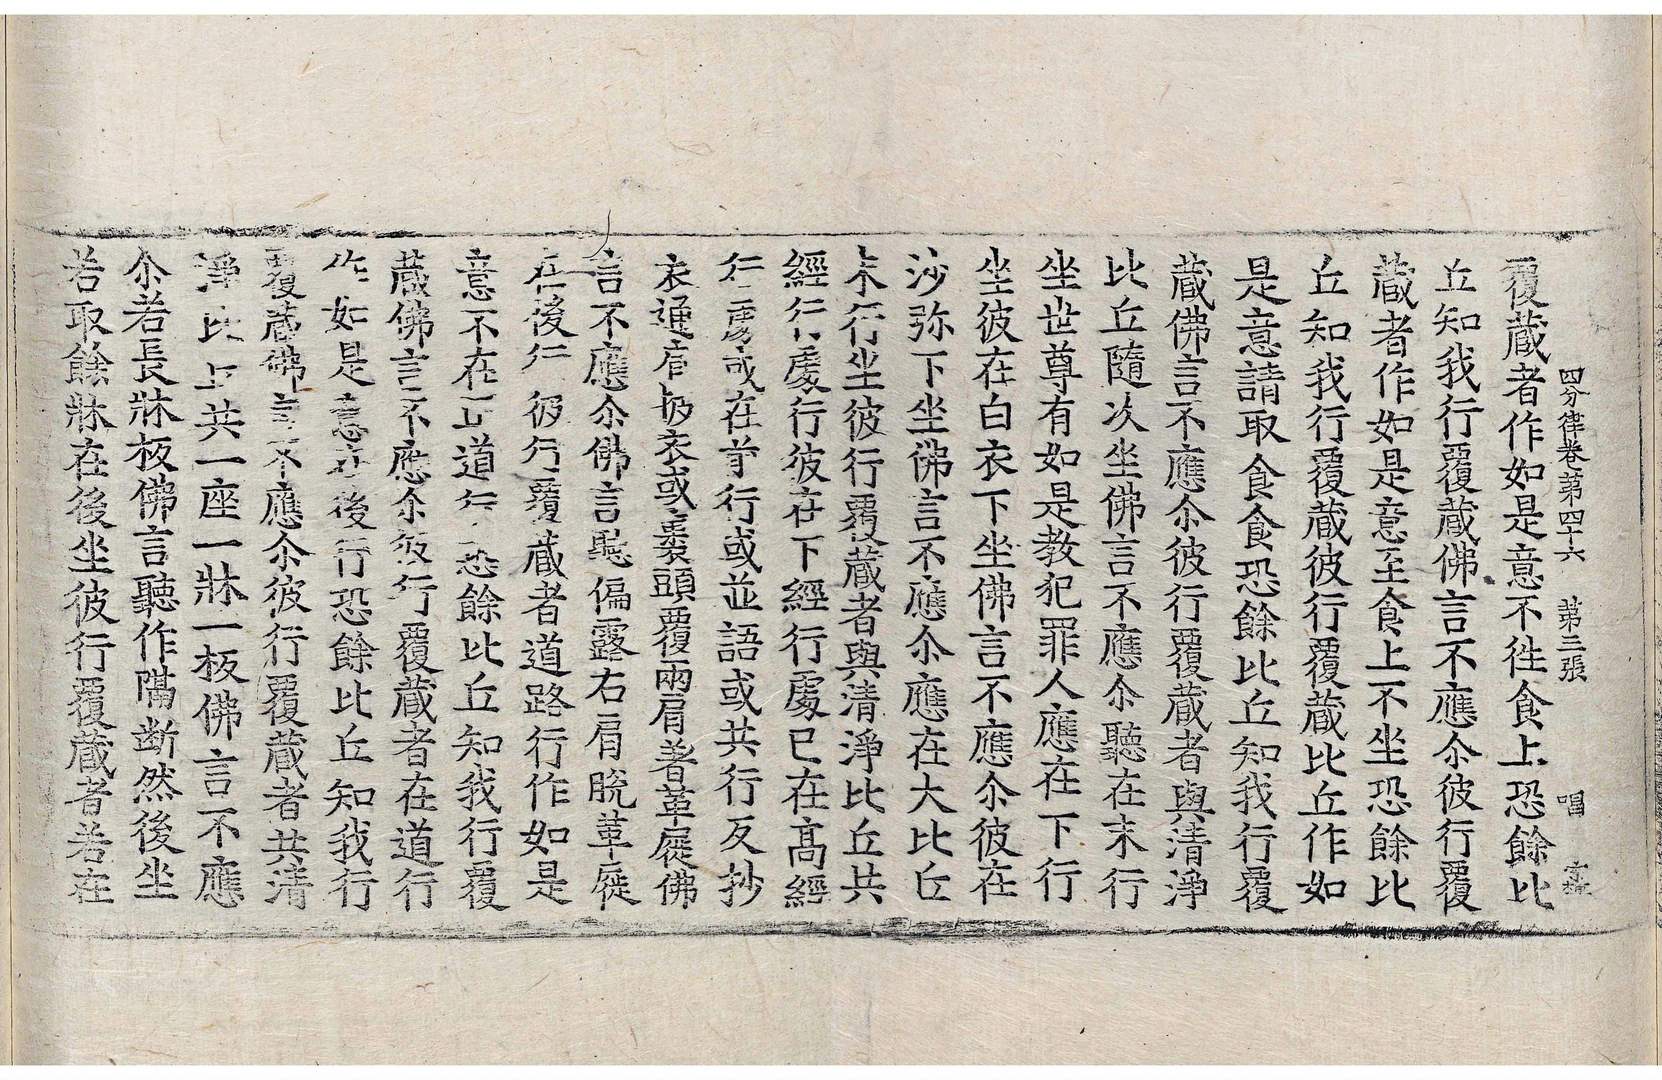 四分律卷第四十六 第三張 唱
覆蔵者作如是意不徃食上恐餘比
丘知我行覆蔵佛言不應尒彼行覆
蔵者作如是意至食上不坐恐餘比
丘知我行覆蔵彼行覆蔵比丘作如
是意請取食食恐餘比丘知我行覆
蔵佛言不應尒彼行覆蔵者與清淨
比丘隨次坐佛言不應尒聽在末行
坐世尊有如是教犯罪人應在下行
坐彼在白衣下坐佛言不應尒彼在
沙弥下坐佛言不應尒應在大比丘
末行坐彼行覆蔵者與清淨比丘共
經行處行彼在下經行處已在髙經
行處或在前行或並語或共行反抄
衣通肩披衣或褁頭覆兩肩著革屣佛
言不應尒佛言聽偏露右肩脫革屣
在後行彼行覆蔵者道路行作如是
意不在正道行恐餘比丘知我行覆
蔵佛言不應尒彼行覆蔵者在道行
作如是意在後行恐餘比丘知我行
覆蔵佛言不應尒彼行覆蔵者共清
淨比丘共一座一牀一板佛言不應
尒若長牀板佛言聽作隔斷然後坐
若取餘牀在後坐彼行覆蔵者若在